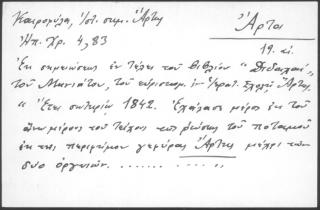 Καιρομύλα, Ἱστ. σημ. Ἄρτης
Ἄρτα
Ἠπ. Χρ. 4, 83
19. αἰ.
Ἐκ σημειώσεως ἐν τέλει τοῦ βιβλίου "Διδαχαὶ"
τοῦ Μηνιάτου, τοῦ εὑρισκομ. ἐν Ἱερατ. Σχολῇ Ἄρτης.
" Ἔτει σωτηρίῳ 1842. Ἐχάλασε μέρος ἐκ τοῦ
ἄνω μέρους τοῦ τείχους τῆς ῥεύσεως τοῦ ποταμοῦ
ἐκ τῆς περιφήμου γεφύρας Ἄρτης μέχρι τῶν
δύο ὀργυιῶν. ......... "